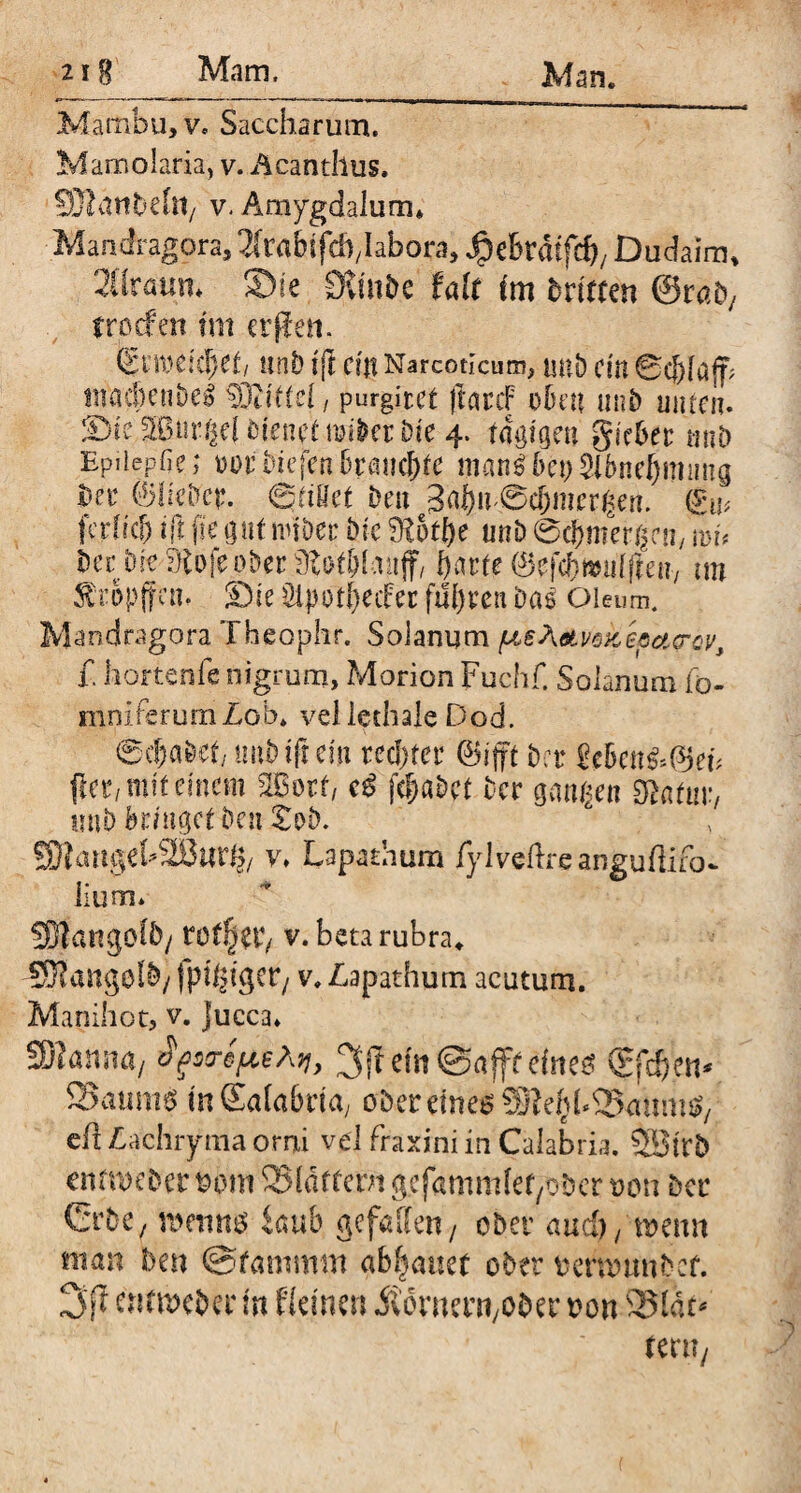 218 Mam. Man.
Mambu, v. Saccharum.
Mamolaria, v. Acanthus.
Mandeln/ v. Amygdalum.
Mandragora, Arabisch/labora, Hebräisch/ Dudaim,
Alraun. Die Rinde kalt im dritten Grad/
trocken im ersten.
Erweichet/ und ist ein Narcoticum, und ein Schlaff-
machendes Mittel/ purgiret starck oben und unten.
Die Wurtzel dienet wider die 4. tägigen Fieber und
Epilepsie; vor diesen brauchte mans bey Abnehmung
der Glieder. Stillet den Zahn-Schmertzen. Eu-
serlich ist sie gut wider die Röthe und Schmertzen, wi-
der die Rose oder Rothlauff/ harte Geschwulsten/ im
Kröpffen. Die Apothecker führen das Oleum.
Mandragora Theophr. Solanum μελανοκέρασον,
s. hortense nigrum, Morion Fuchs. Solanum so-
mniferum Lob. vel lethale Dod.
Schadet/ und ist ein rechter Gifft der Lebens-Gei-
ster/ mit einem Wort/ es schadet der gantzen Natur/
und bringet den Tod.
Mangel-Wurtz/ v. Lapathum sylvestre angustifo-
lium.
Mangold/ rother/ v. beta rubra.
Mangold/ spitziger/ v. Lapathum acutum.
Manihot, v. Jucca.
Manna/ δροσόμελη, Ist ein Safft eines Eschen-
Baums in Calabria/ oder eines Mehl-Baums/
est Lachryma orni vel fraxini in Calabria. Wird
entweder vom Blättern gesammlet/oder von der
Erde/ wenns laub gefallen/ oder auch/ wenn
man den Stammm abhauet oder verwundet.
Ist entweder in kleinen Körnern/oder von Blät-
tern/